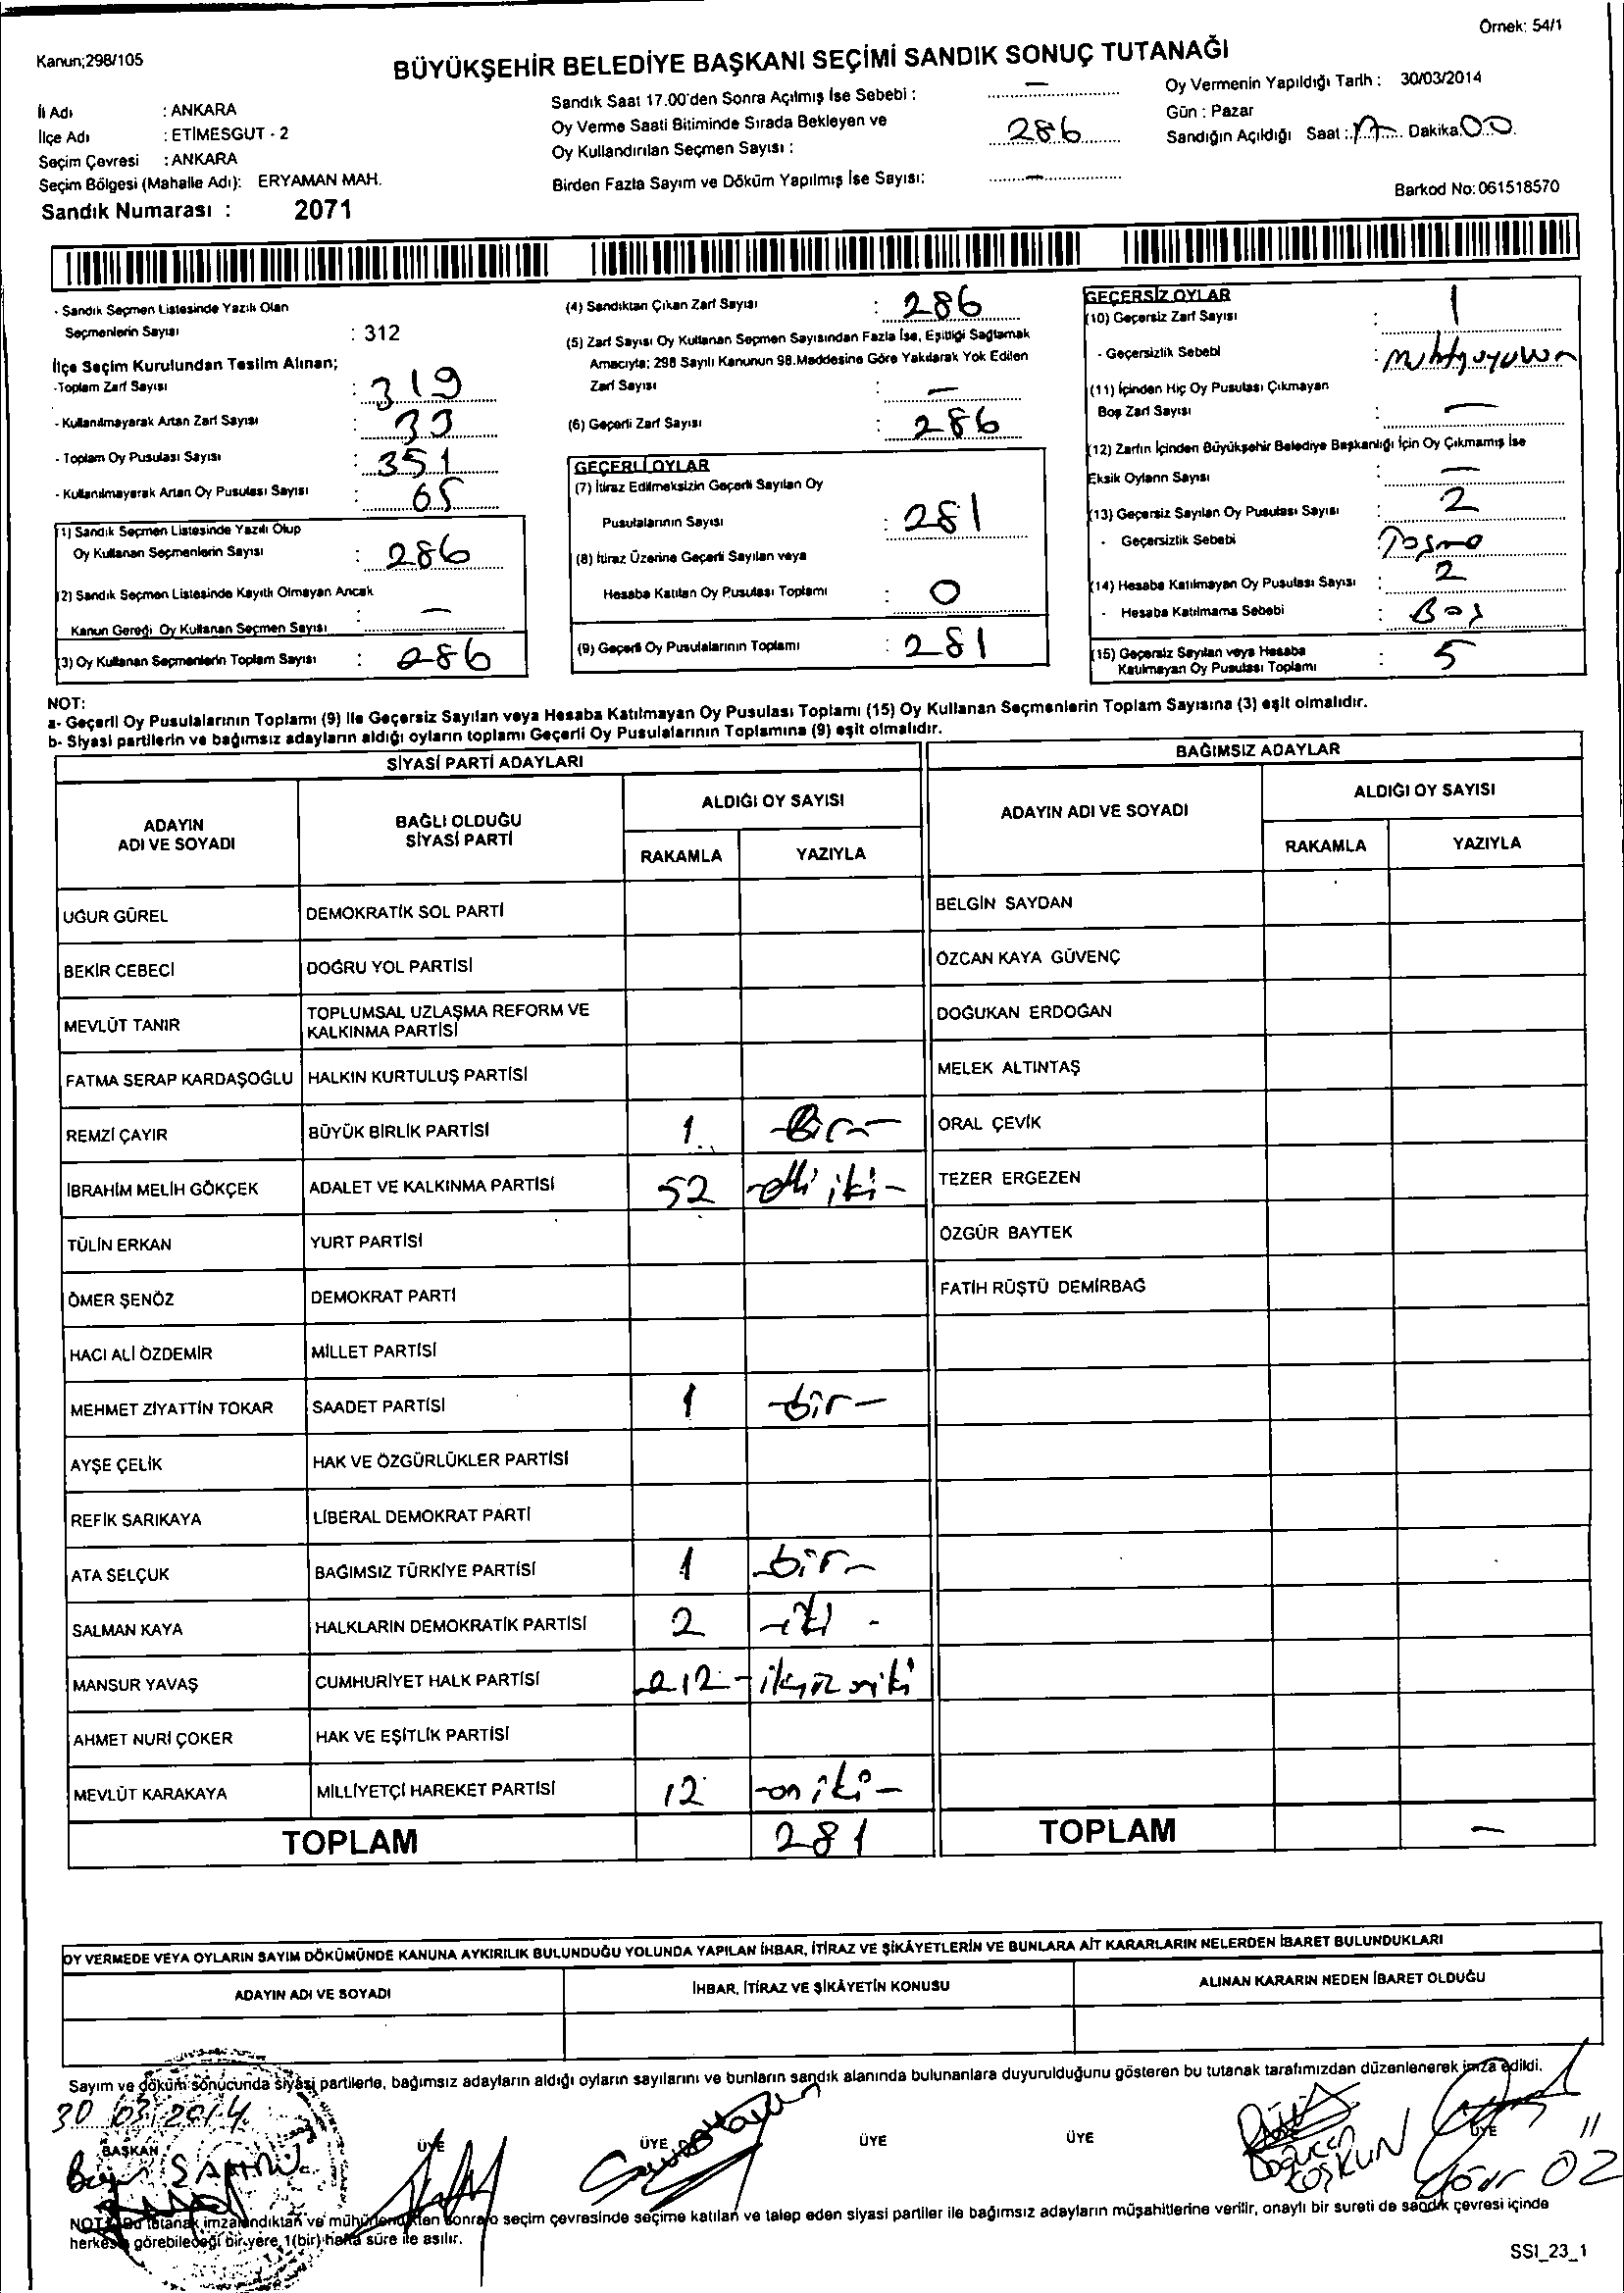 Örnek: 54/1
Kanun;298/105
BÜYÜKŞEHİR BELEDİYE BAŞKANI SEÇİMİ SANDIK SONUÇ TUTANAĞI
İl Adı : ANKARA
İlçe Adı : ETİMESGUT - 2
Seçim Çevresi : ANKARA
Seçim Bölgesi (Mahalle Adı): ERYAMAN MAH.
Sandık Numarası : 2071
Sandık Saat 17.00'den Sonra Açılmış İse Sebebi : —
Oy Verme Saati Bitiminde Sırada Bekleyen ve
Oy Kullandırılan Seçmen Sayısı : 286
Birden Fazla Sayım ve Döküm Yapılmış İse Sayısı: —
Oy Vermenin Yapıldığı Tarih : 30/03/2014
Gün : Pazar
Sandığın Açıldığı Saat : 17 Dakika 00
Barkod No: 061518570
- Sandık Seçmen Listesinde Yazılı Olan
Seçmenlerin Sayısı : 312
İlçe Seçim Kurulundan Teslim Alınan;
-Toplam Zarf Sayısı : 319
- Kullanılmayarak Artan Zarf Sayısı : 33
- Toplam Oy Pusulası Sayısı : 351
- Kullanılmayarak Artan Oy Pusulası Sayısı : 65
(1) Sandık Seçmen Listesinde Yazılı Olup
Oy Kullanan Seçmenlerin Sayısı : 286
(2) Sandık Seçmen Listesinde Kayıtlı Olmayan Ancak
Kanun Gereği Oy Kullanan Seçmen Sayısı : —
(3) Oy Kullanan Seçmenlerin Toplam Sayısı : 286
(4) Sandıktan Çıkan Zarf Sayısı : 286
(5) Zarf Sayısı Oy Kullanan Seçmen Sayısından Fazla İse, Eşitliği Sağlamak
Amacıyla; 298 Sayılı Kanunun 98.Maddesine Göre Yakılarak Yok Edilen
Zarf Sayısı : —
(6) Geçerli Zarf Sayısı : 286
GEÇERLİ OYLAR
(7) İtiraz Edilmeksizin Geçerli Sayılan Oy
Pusulalarının Sayısı : 281
(8) İtiraz Üzerine Geçerli Sayılan veya
Hesaba Katılan Oy Pusulası Toplamı : 0
(9) Geçerli Oy Pusulalarının Toplamı : 281
GEÇERSİZ OYLAR
(10) Geçersiz Zarf Sayısı : 1
- Geçersizlik Sebebi :
(11) İçinden Hiç Oy Pusulası Çıkmayan
Boş Zarf Sayısı : —
(12) Zarfın İçinden Büyükşehir Belediye Başkanlığı İçin Oy Çıkmamış İse
Eksik Oyların Sayısı : —
(13) Geçersiz Sayılan Oy Pusulası Sayısı : 2
- Geçersizlik Sebebi : Taşma
(14) Hesaba Katılmayan Oy Pusulası Sayısı : 2
- Hesaba Katılmama Sebebi : Boş
(15) Geçersiz Sayılan veya Hesaba
Katılmayan Oy Pusulası Toplamı : 5
NOT:
a- Geçerli Oy Pusulalarının Toplamı (9) ile Geçersiz Sayılan veya Hesaba Katılmayan Oy Pusulası Toplamı (15) Oy Kullanan Seçmenlerin Toplam Sayısına (3) eşit olmalıdır.
b- Siyasi partilerin ve bağımsız adayların aldığı oyların toplamı Geçerli Oy Pusulalarının Toplamına (9) eşit olmalıdır.
SİYASİ PARTİ ADAYLARI
ADAYIN
ADI VE SOYADI
BAĞLI OLDUĞU
SİYASİ PARTİ
ALDIĞI OY SAYISI
RAKAMLA YAZIYLA
UĞUR GÜREL DEMOKRATİK SOL PARTİ
BEKİR CEBECİ DOĞRU YOL PARTİSİ
MEVLÜT TANIR TOPLUMSAL UZLAŞMA REFORM VE
KALKINMA PARTİSİ
FATMA SERAP KARDAŞOĞLU HALKIN KURTULUŞ PARTİSİ
REMZİ ÇAYIR BÜYÜK BİRLİK PARTİSİ 1 -Bir-
İBRAHİM MELİH GÖKÇEK ADALET VE KALKINMA PARTİSİ 52 -elli iki-
TÜLİN ERKAN YURT PARTİSİ
ÖMER ŞENÖZ DEMOKRAT PARTİ
HACI ALİ ÖZDEMİR MİLLET PARTİSİ
MEHMET ZİYATTİN TOKAR SAADET PARTİSİ 1 -bir-
AYŞE ÇELİK HAK VE ÖZGÜRLÜKLER PARTİSİ
REFİK SARIKAYA LİBERAL DEMOKRAT PARTİ
ATA SELÇUK BAĞIMSIZ TÜRKİYE PARTİSİ 1 -bir-
SALMAN KAYA HALKLARIN DEMOKRATİK PARTİSİ 2 -iki-
MANSUR YAVAŞ CUMHURİYET HALK PARTİSİ 212 -ikiyüz oniki
AHMET NURİ ÇOKER HAK VE EŞİTLİK PARTİSİ
MEVLÜT KARAKAYA MİLLİYETÇİ HAREKET PARTİSİ 12 -on iki-
TOPLAM 281
BAĞIMSIZ ADAYLAR
ADAYIN ADI VE SOYADI
ALDIĞI OY SAYISI
RAKAMLA YAZIYLA
BELGİN SAYDAN
ÖZCAN KAYA GÜVENÇ
DOĞUKAN ERDOĞAN
MELEK ALTINTAŞ
ORAL ÇEVİK
TEZER ERGEZEN
ÖZGÜR BAYTEK
FATİH RÜŞTÜ DEMİRBAĞ
TOPLAM —
OY VERMEDE VEYA OYLARIN SAYIM DÖKÜMÜNDE KANUNA AYKIRILIK BULUNDUĞU YOLUNDA YAPILAN İHBAR, İTİRAZ VE ŞİKÂYETLERİN VE BUNLARA AİT KARARLARIN NELERDEN İBARET BULUNDUKLARI
ADAYIN ADI VE SOYADI İHBAR, İTİRAZ VE ŞİKÂYETİN KONUSU ALINAN KARARIN NEDEN İBARET OLDUĞU
Sayım ve döküm sonucunda siyasi partilerle, bağımsız adayların aldığı oyların sayılarını ve bunların sandık alanında bulunanlara duyurulduğunu gösteren bu tutanak tarafımızdan düzenlenerek imza edildi.
30 03 2014
BAŞKAN ÜYE ÜYE ÜYE ÜYE ÜYE
COŞKUN
NOT: Bu tutanak imzalandıktan ve mühürlendikten sonra o seçim çevresinde seçime katılan ve talep eden siyasi partiler ile bağımsız adayların müşahitlerine verilir, onaylı bir sureti de sandık çevresi içinde
herkesin görebileceği bir yere 1(bir) hafta süre ile asılır.
SSI_23_1